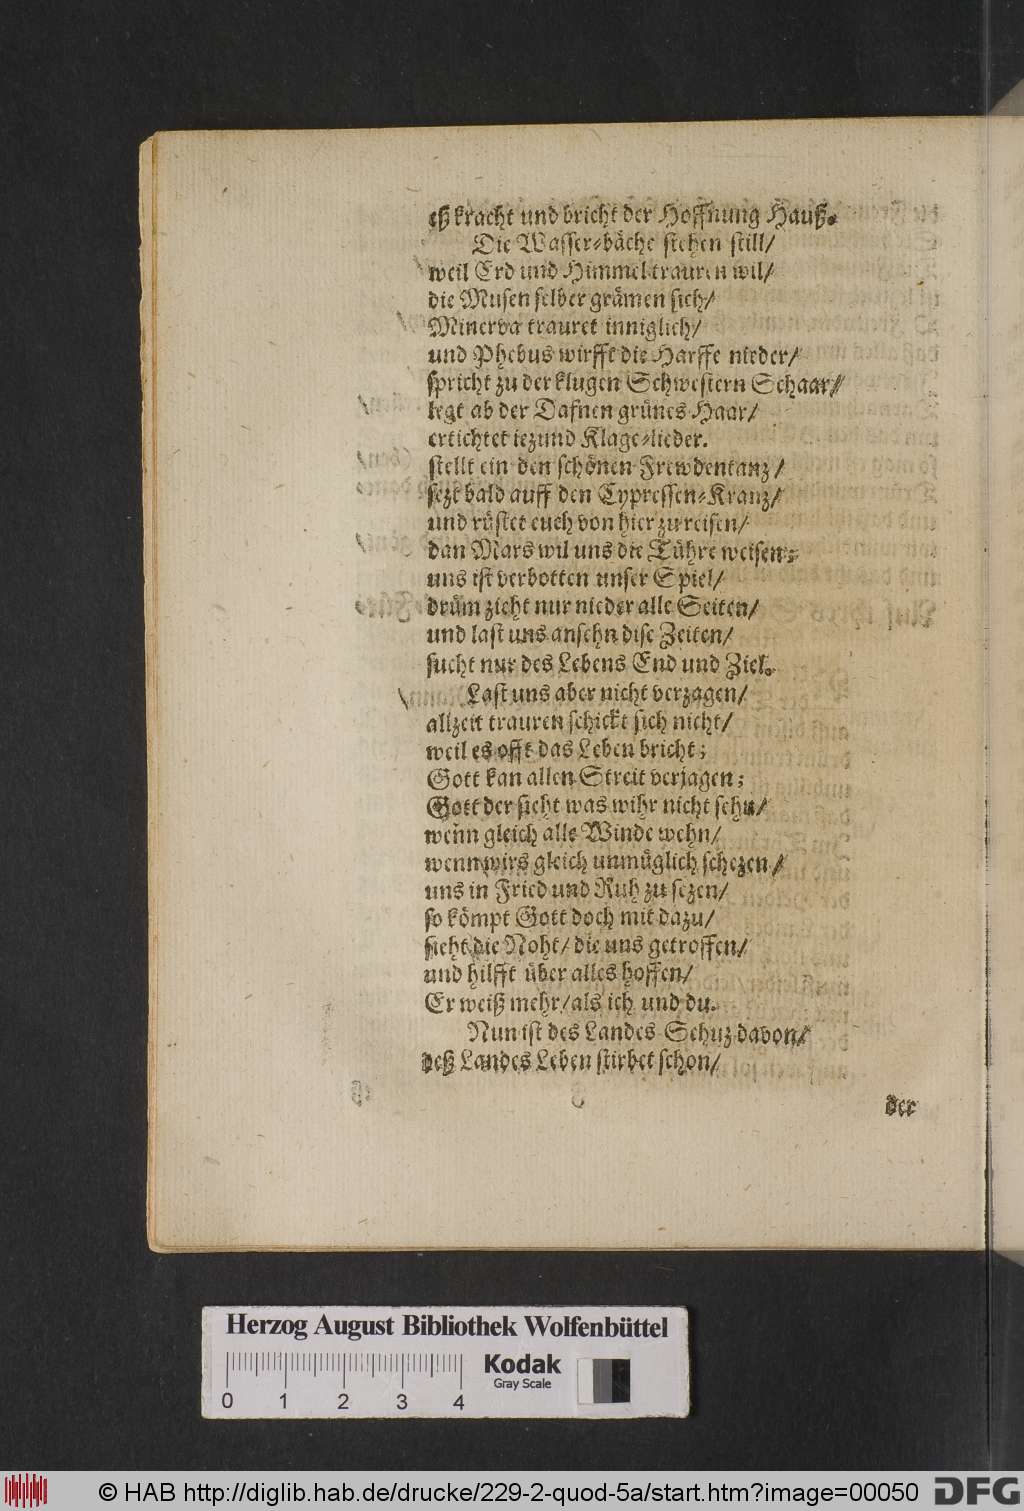 eß kracht und bricht der Hoffnung Hauß.
Die Wasser-bäche stehen still/
weil Erd und Himmel trauren wil/
die Musen selber grämen sich/
Minerva trauret inniglich/
und Phebus wirfft die Harffe nieder/
spricht zu der klugen Schwestern Schaar/
legt ab der Dafnen grünes Haar/
ertichtet iezund Klage-lieder.
stellt ein den schönen Frewdentanz/
sezt bald auff den Cypressen-Kranz/
und rüstet euch von hier zu reisen/
dan Mars wil uns die Tühre weisen;
uns ist verbotten unser Spiel/
drüm zieht nur nieder alle Seiten/
und last uns ansehn dise Zeiten/
sucht nur des Lebens End und Ziel.
Last uns aber nicht verzagen/
allzeit trauren schickt sich nicht/
weil es offt das Leben bricht;
Gott kan allen Streit verjagen;
Gott der sieht was wihr nicht sehn/
wenn gleich alle Winde wehn/
wenn wirs gleich unmüglich schezen/
uns in Fried und Ruh zu sezen/
so kömpt Gott doch mit dazu/
sieht die Noht/ die uns getroffen/
und hilfft über alles hoffen/
Er weiß mehr/ als ich und du.
Nun ist des Landes Schuz davon/
deß Landes Leben stirbet schon/
der
Herzog August Bibliothek Wolfenbüttel
0 1 2 3 4
Kodak
Gray Scale
© HAB http://diglib.hab.de/drucke/229-2-quod-5a/start.htm?image=00050
DFG